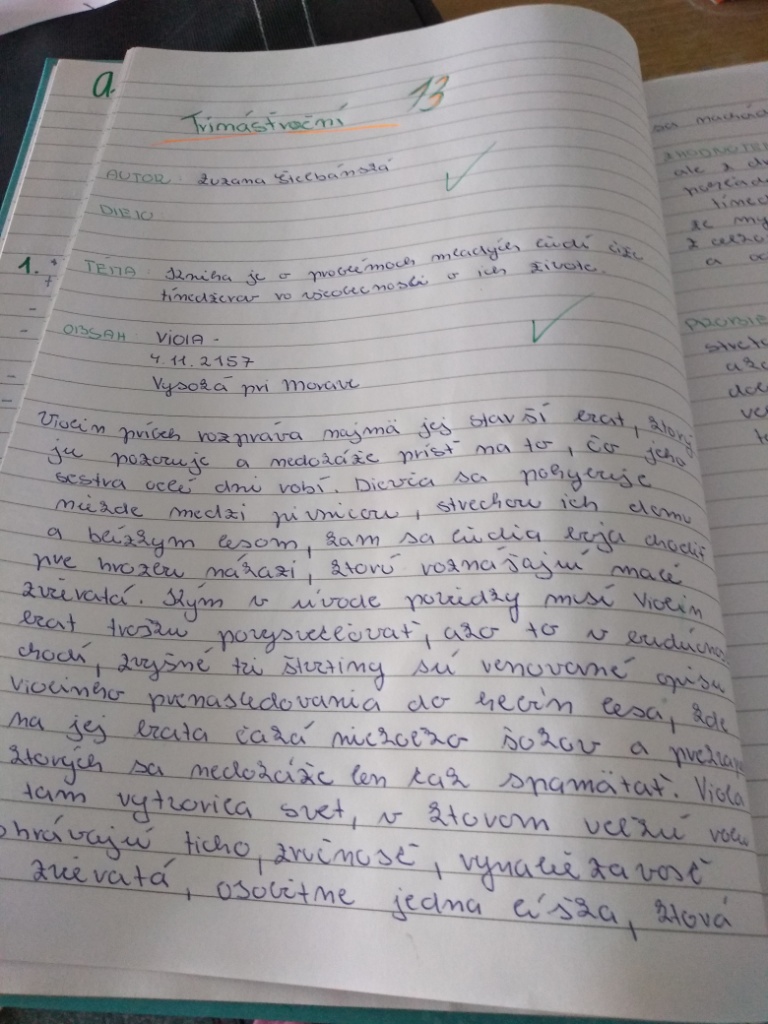 a.
Trinástroční 13
AUTOR: Zuzana Štelbánská
DIELO
1. TÉMA: Kniha je o problémoch mladých ľudí čiže
tínedžerov vo všeobecnosti o ich živote.
OBSAH: VIOLA -
4.11.2157
Vysoká pri Morave
Violin príbeh rozpráva najmä jej starší brat, ktorý
ju pozoruje a nedokáže prísť na to, čo jeho
sestra celé dni robí. Dievča sa pohybuje
niekde medzi pivnicou, strechou ich domu
a blízkym lesom, kam sa ľudia boja chodiť
pre hrozbu nákazi, ktorú roznášajú malé
zvieratá. Kým v úvode poviedky musí Violin
brat trošku povysvetľovať, ako to v budúcnos
chodí, zvyšné tri štvrtiny sú venované opisu
Violinho prenasledovania do hlbín lesa, kde
na jej brata čaká niekoľko šokov a prekvap
ktorých sa nedokáže len tak spamätať. Viola
tam vytvorila svet, v ktorom veľkú rolu
ohrávajú ticho, zručnosť, vynaliezavosť
zvieratá, osobitne jedna líška, ktorá
sa
ale z
se my
z celko